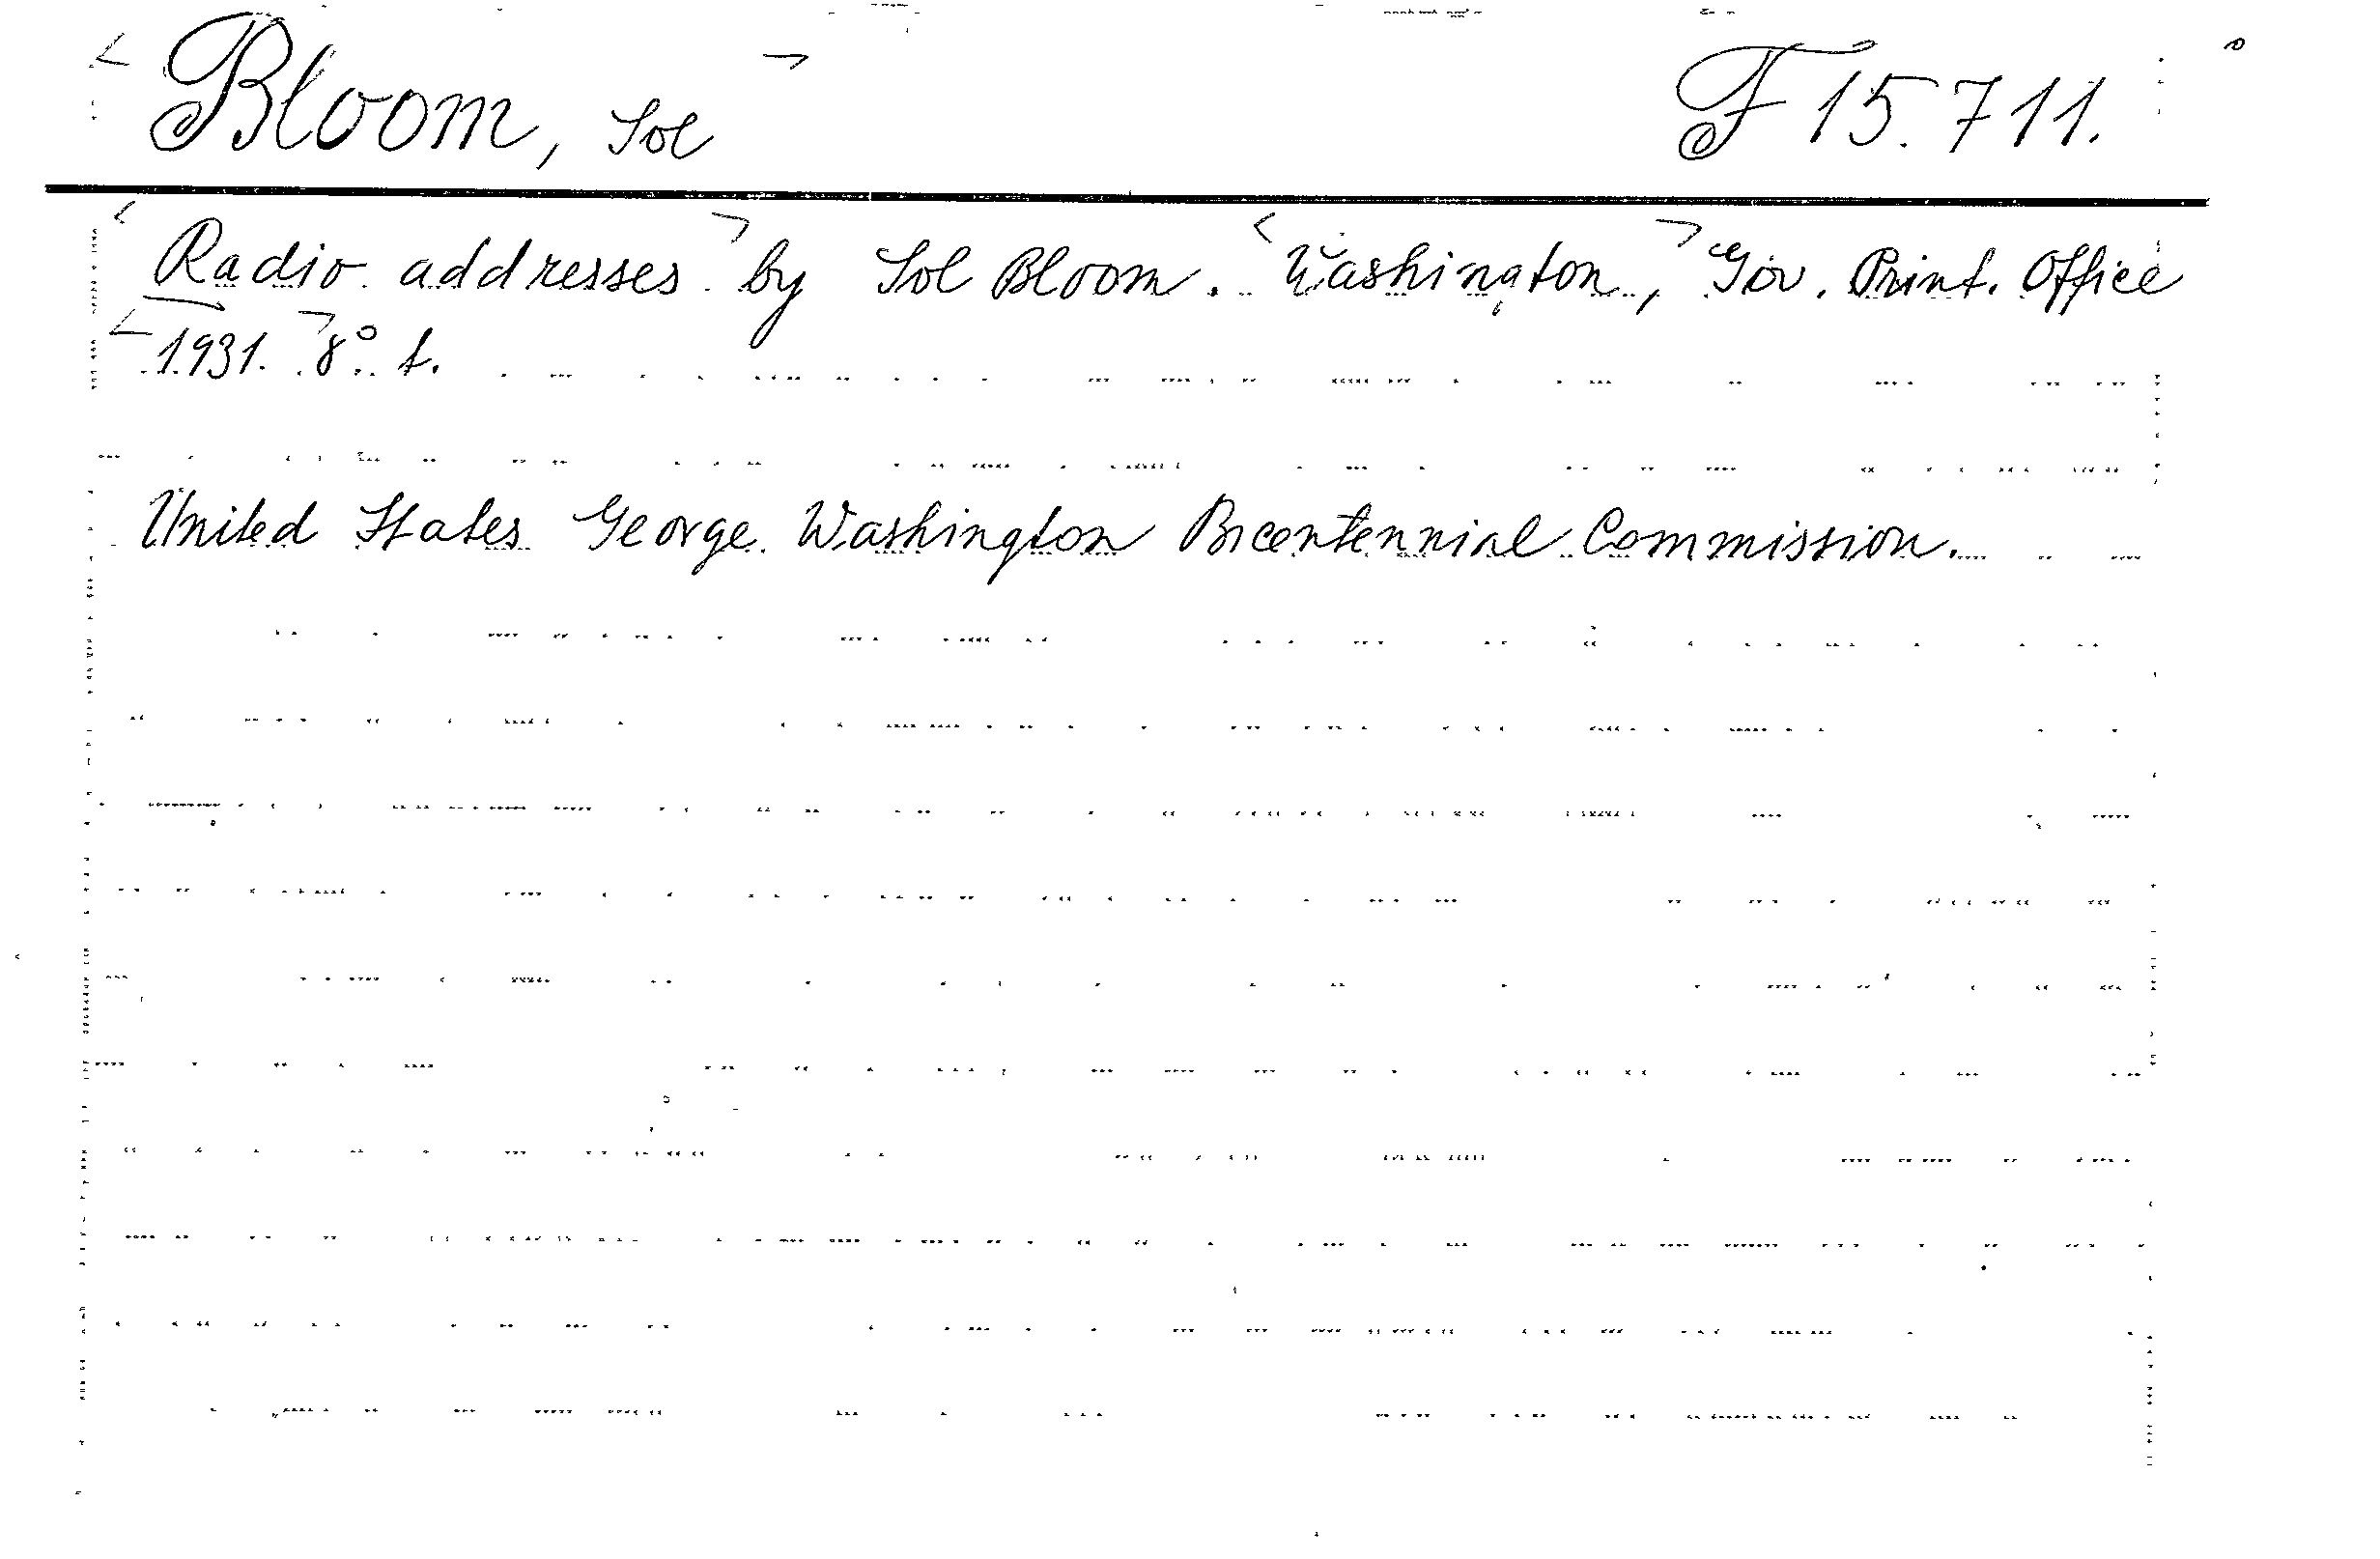 Bloom, Sol F 15.711.
Radio addresses by Sol Bloom. Washington, Gov. Print. Office
1931. 8° t.
United States George Washington Bicentennial Commission.